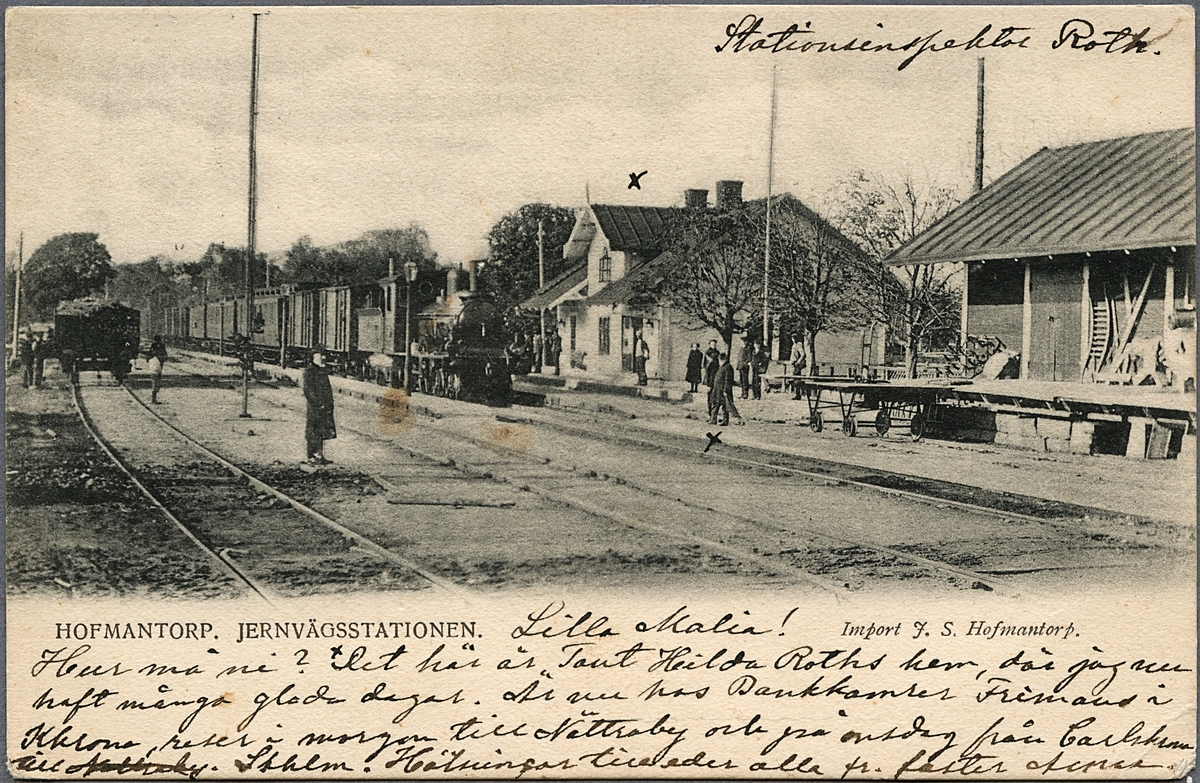 Stationsinspektor Roth.
HOFMANTORP. JERNVÄGSSTATIONEN.
Lilla Malia!
Import J. S. Hofmantorp.
Hur må ni? x Det här är Tant Hilda Roths hem, där jag nu
haft många glada dagar. Är nu hos Bankkamrer Frimans i
Khrona, reser i morgon till Nättraby och på onsdag från Carlskrona
till Nättraby. Sthlm. Hälsningar till eder alla fr. faster Anna.